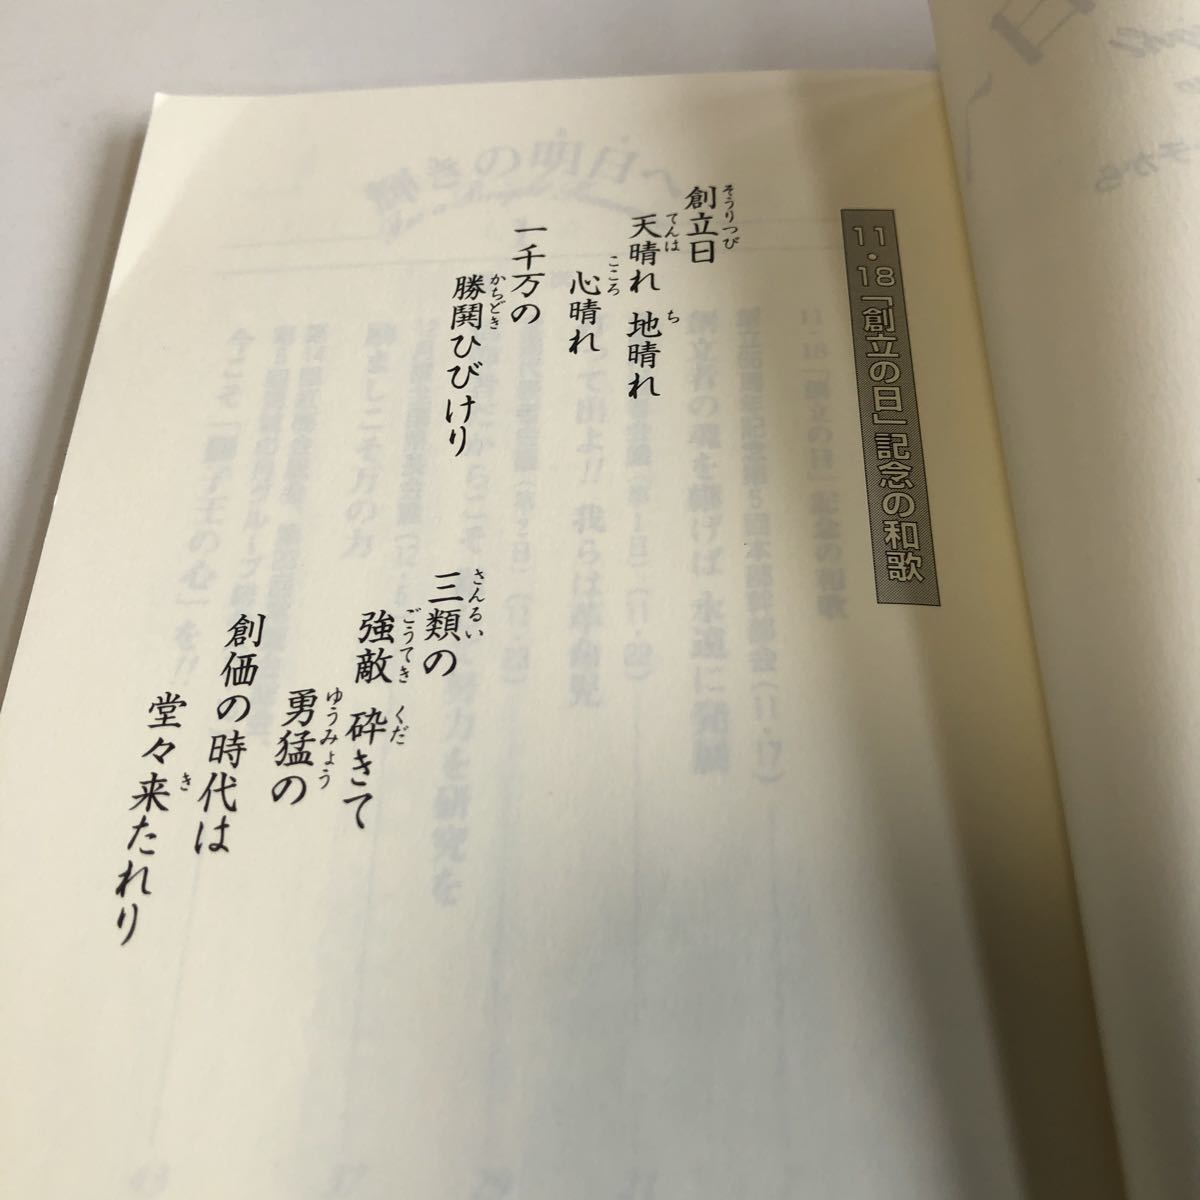 11・18「創立の日」記念の和歌
創立日
天晴れ 地晴れ
心晴れ
一千万の
勝鬨ひびけり
三類の
強敵 砕きて
勇猛の
創価の時代は
堂々来たれり